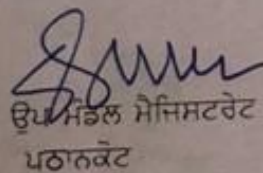 ਉਪ ਮੰਡਲ ਮੈਜਿਸਟਰੇਟ
ਪਠਾਨਕੋਟ